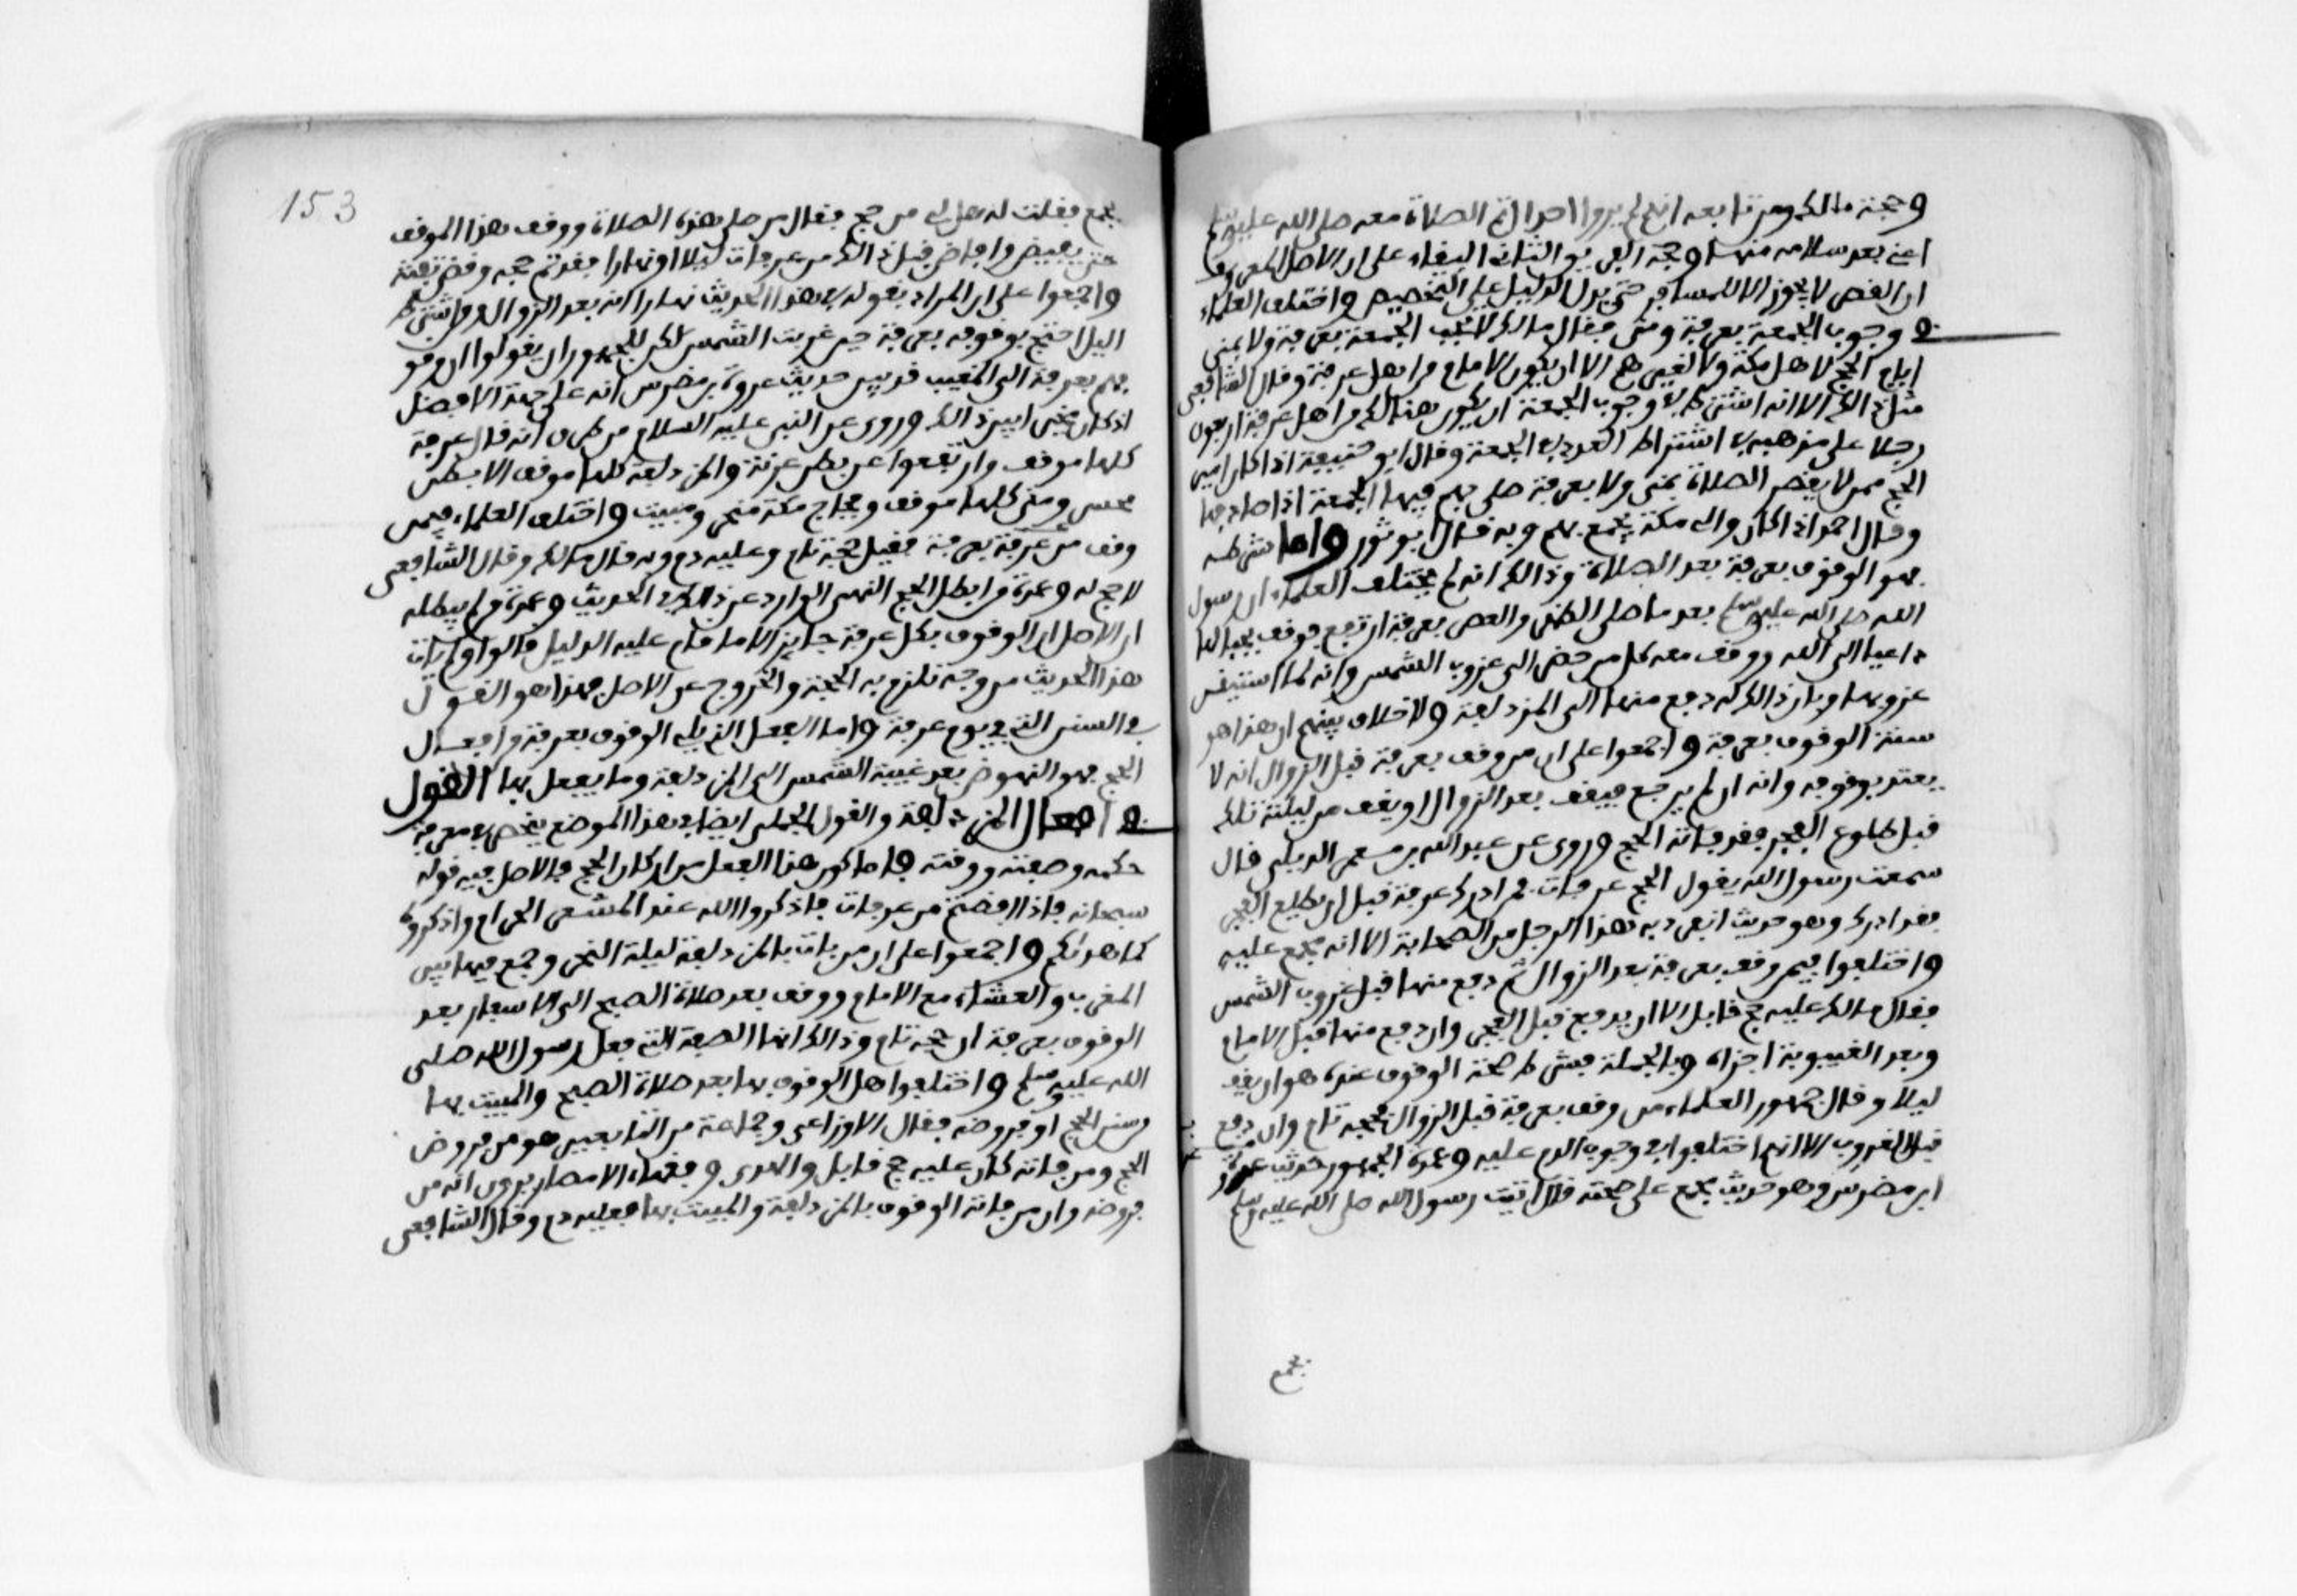 وحجة مالك ومن تابعه انهم لم يروا احدا اتم الصلاة معه صلى الله عليه وسلم
اعني بعد سلامه منها وحجة الفريق الثاني البقاء على ان الاصل المعروف
ان القصر لا يجوز الا للمسافر حتى يدل الدليل على التخصيص واختلف العلماء
في وجوب الجمعة بعرفة ومنى فقال مالك لا تجب الجمعة بعرفة ولا بمنى
ايام الحج لا لاهل مكة ولا لغيرهم الا ان يكون الامام من اهل عرفة وقال الشافعي
مثل ذلك الا انه اشترط في وجوب الجمعة ان يكون هنالك من اهل عرفة اربعون
رجلا على مذهبه في اشتراط العدد في الجمعة وقال ابو حنيفة اذا كان امير
الحج ممن لا يقصر الصلاة بمنى ولا بعرفة صلى بهم فيها الجمعة اذا صادفها
وقال احمد اذا كان والي مكة يجمع بهم وبه قال ابو ثور واما شرطه
فهو الوقوف بعرفة بعد الصلاة وذالك انه لم يختلف العلماء ان رسول
الله صلى الله عليه وسلم بعد ما صلى الظهر والعصر بعرفة ارتفع فوقف بجبالها
داعيا الى الله ووقف معه كل من حضر الى غروب الشمس وانه لما استيقن
غروبها وبان ذالك له دفع منها الى المزدلفة ولا خلاف بينهم ان هذا هو
سنة الوقوف بعرفة واجمعوا على ان من وقف بعرفة قبل الزوال انه لا
يعتد بوقوفه وانه ان لم يرجع فيقف بعد الزوال او يقف من ليلته تلك
قبل طلوع الفجر فقد فاته الحج وروي عن عبد الله بن معمر الديلي قال
سمعت رسول الله يقول الحج عرفات فمن ادرك عرفة قبل ان يطلع الفجر
فقد ادرك وهو حديث انفرد به هذا الرجل من الصحابة الا انه مجمع عليه
واختلفوا فيمن وقف بعرفة بعد الزوال ثم دفع منها قبل غروب الشمس
فقال مالك عليه حج قابل الا ان يدفع قبل الفجر وان دفع منها قبل الامام
وبعد الغيبوبة اجزاه وبالجملة فشرط صحة الوقوف عنده هو ان يقف
ليلا وقال جمهور العلماء من وقف بعرفة قبل الزوال فحجه تام وان دفع
قبل الغروب الا انهم اختلفوا في وجوب الدم عليه وعمدة الجمهور حديث عروة
ابن مضرس وهو حديث مجمع على صحته قال اتيت رسول الله صلى الله عليه وسلم
بجمع
153
بجمع فقلت له هل لي من حج فقال من صلى هذه الصلاة ووقف هذا الموقف
حتى يفيض وافاض قبل ذالك من عرفات ليلا او نهارا فقد تم حجه وقضى تفثه
واجمعوا على ان المراد بقوله في هذا الحديث نهارا انه بعد الزوال ومن اشترط
اليل احتج بوقوفه بعرفة حين غربت الشمس لكن للجمهور ان يقولوا ان وقو
فهم بعرفة الى المغيب قد بين حديث عروة بن مضرس انه على جهة الافضل
اذ كان مخيرا بين ذالك وروي عن النبي عليه السلام من طرق انه قال عرفة
كلها موقف وارتفعوا عن بطن عرنة والمزدلفة كلها موقف الا بطن
محسر ومنى كلها موقف وفجاج مكة منحر ومبيت واختلف العلماء فيمن
وقف من عرفة بعرنة فقيل حجه تام وعليه دم وبه قال مالك وقال الشافعي
لا حج له وعمدة من ابطل الحج النهي الوارد عن ذالك في الحديث وعمدة من لم يبطله
ان الاصل ان الوقوف بكل عرفة جايز الا ما قام عليه الدليل قالوا ولم يات
هذا الحديث من وجه تلزم به الحجة والخروج عن الاصل فهذا هو القول
في السنن التي في يوم عرفة واما الفعل الذي يلي الوقوف بعرفة من افعال
الحج فهو النهوض بعد غيبة الشمس الى المزدلفة وما يفعل بها القول
في افعال المزدلفة والقول الجملي ايضا في هذا الموضع ينحصر في معرفة
حكمه وصفته ووقته فاما كون هذا الفعل من اركان الحج فالاصل فيه قوله
سبحانه فاذا افضتم من عرفات فاذكروا الله عند المشعر الحرام واذكروه
كما هدئكم واجمعوا على ان من بات بالمزدلفة ليلة النحر وجمع فيها بين
المغرب والعشاء مع الامام ووقف بعد صلاة الصبح الى الاسفار بعد
الوقوف بعرفة ان حجه تام وذالك انها الصفة التي فعل رسول الله صلى
الله عليه وسلم واختلفوا هل الوقوف بها بعد صلاة الصبح والمبيت بها
من سنن الحج او فروضه فقال الاوزاعي وجماعة من التابعيين هو من فروض
الحج ومن فاته كان عليه حج قابل والهدي وفقهاء الامصار يرون انه من
فروضه وان من فاته الوقوف بالمزدلفة والمبيت بها فعليه دم وقال الشافعي